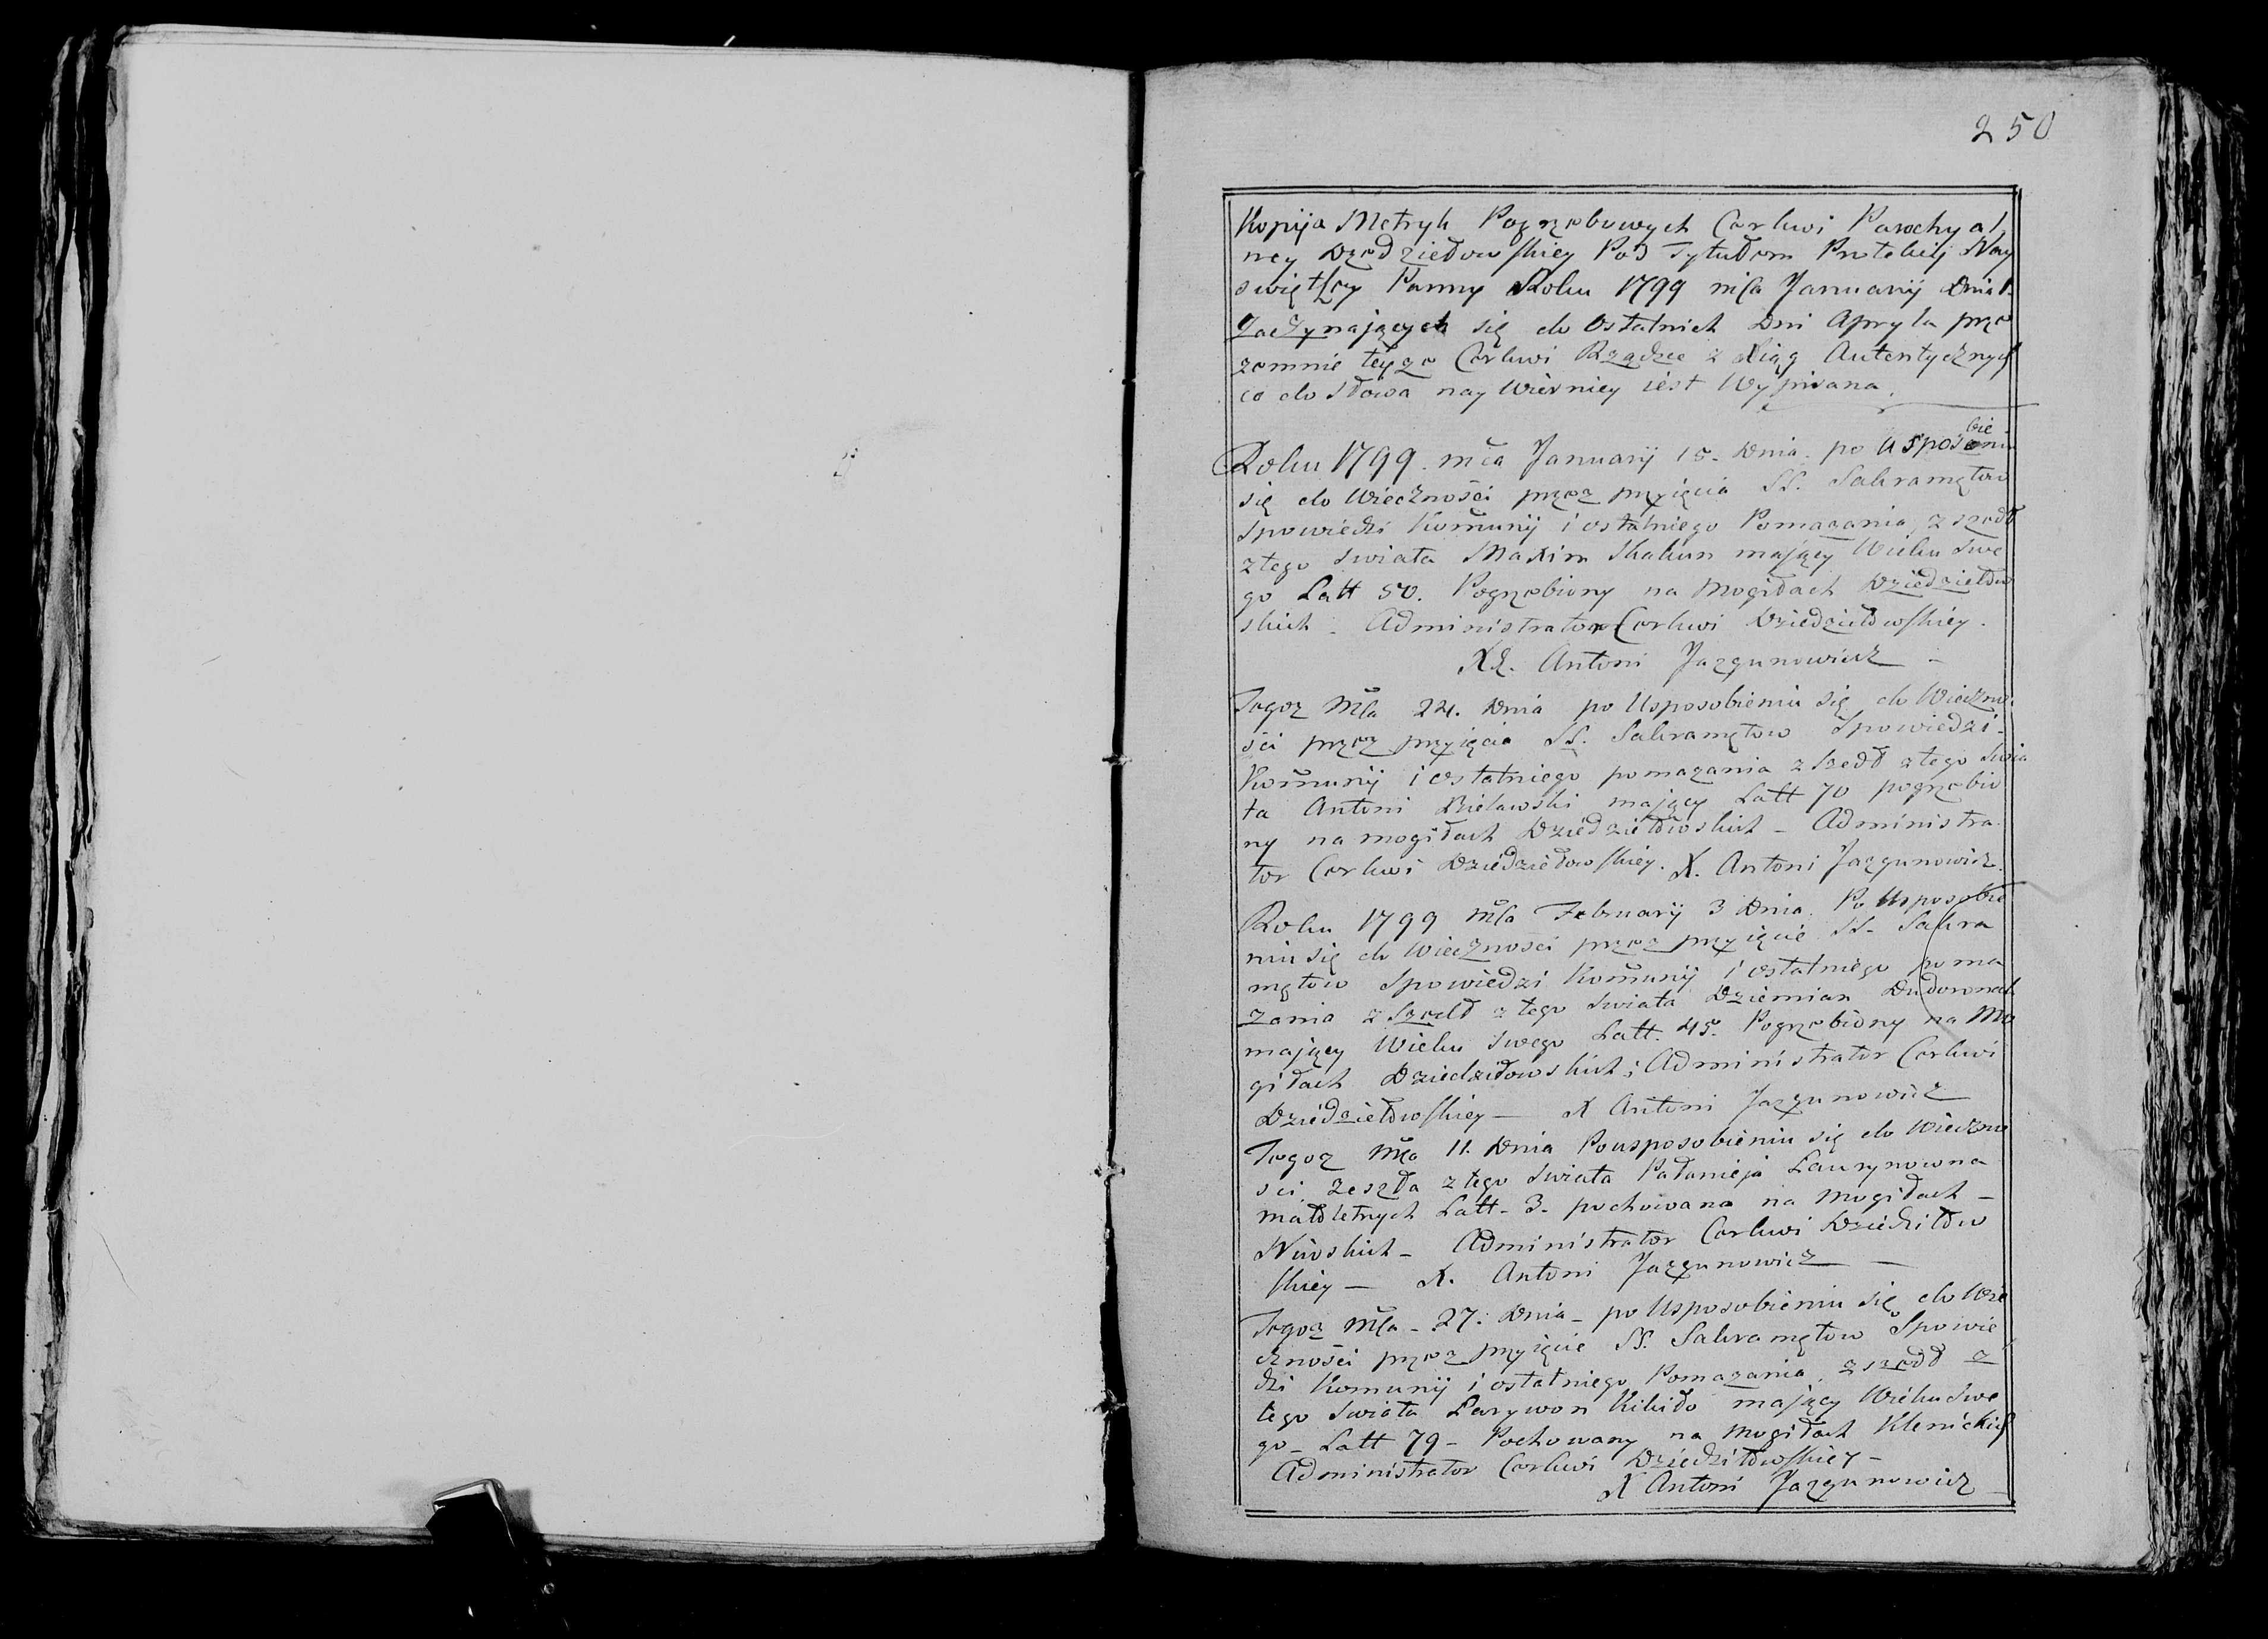 250
Kopija Metryk Pogrzebowych Cerkwi Parochyal
ney Dzedziełowskiey Pod Tytułem Protekcij Nay
swiętszey Panny Roku 1799 mca Januarij Dnia 1.
Zaczynających się do Ostatnich Dni Apryla prze
zemnie teyze Cerkwi Rządzce z Xiąg Autentycznych
co do Słowa nay Wierniey iest Wypisana
Roku 1799. mca Januarij 15. Dnia. po Usposobieniu
się do Wieczności przez przyięcia SS. Sakramętow
Spowiedzi Komunij i ostatniego Pomazania zszedł
z tego swiata Maxim Skakun mający Wieku Swe
go Latt 50. Pogrzebiony na Mogiłach Dziedziełow
skich. Administrator Cerkwi Dziedziełowskiey.
XL. Antoni Jazgunowicz
Tegoz Mca 24. Dnia po Usposobieniu się do Wieczno
ści przez przyięcia SS. Sakramętow Spowiedzi
Komunij i ostatniego pomazania zszedł z tego Swia
ta Antoni Bielawski mający Latt 70 pogrzebio
ny na mogiłach Dziedziełowskich - Administra
tor Cerkwi Dziedziełowskiey. X. Antoni Jazgunowicz
Roku 1799 Mca Februarij 3 Dnia. Po Usposobie
niu się do Wieczności przez przyięcie SS. Sakra
mętow Spowiedzi Komunij i ostatniego poma
zania zszedł z tego Swiata Dziemian
mający Wieku Swego Latt. 45. Pogrzebiony na Mo
giłach Dziedziłowskich; Administrator Cerkwi
Dziedziełowskiey - X Antoni Jazgunowicz
Tegoz Mca 11. Dnia Pousposobieniu się do Wieczno
sci zeszła z tego Swiata Pałanieja Laurynowna
małoletnych Latt - 3 - pochowana na mogiłach -
Niwskich - Administrator Cerkwi Dziedziłow
skiey - X. Antoni Jazgunowicz -
Tegoz Mca - 27: Dnia - po Usposobieniu się do Wie
czności przez przyięcie SS. Sakramętow Spowie
dzi Komunij i ostatniego Pomazania zszedł z
tego Swiata Larywon Kikiło mający Wieku Swe
go - Latt 79 - Pochowany na Mogiłach Klenickich
Administrator Cerkwi Dziedziłowskiey -
X Antoni Jazgunowicz